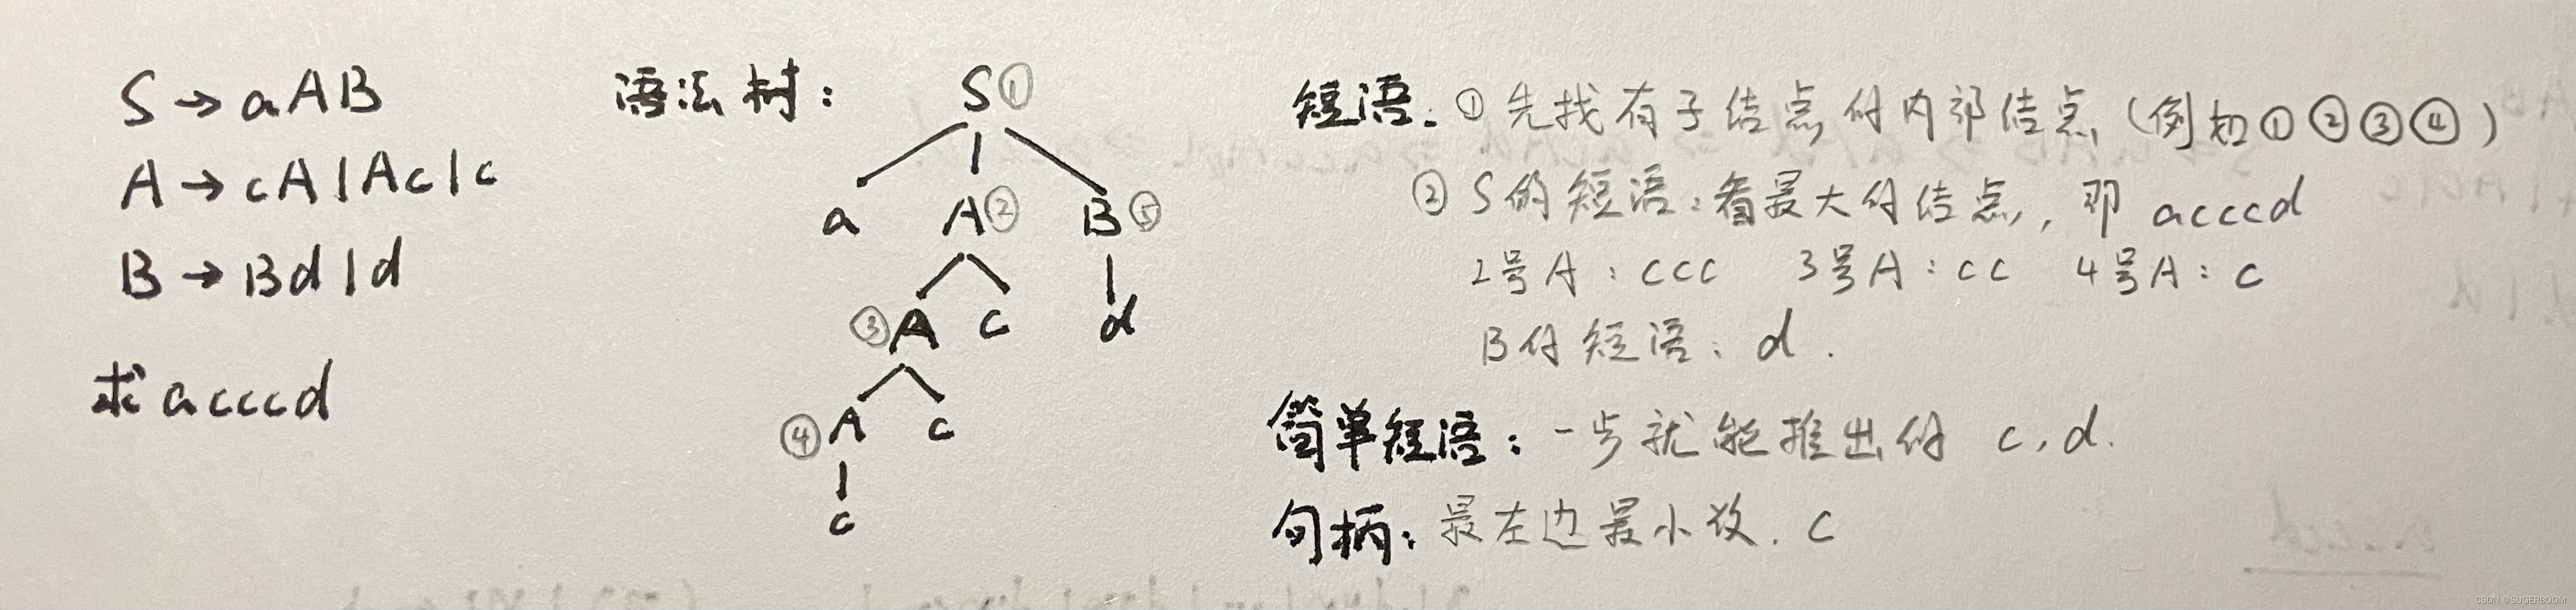 S → aAB
A → cA | Ac | c
B → Bd | d
求 acccd
语法树：
S①
a A② B⑤
③A c d
④A c
c
短语：①先找有子结点的内部结点（例如①②③④）
② S的短语：看最大的结点，即 acccd
2号A：ccc 3号A：cc 4号A：c
B的短语：d.
简单短语：一步就能推出的 c, d.
句柄：最左边最小的. c
CSDN @SUGERBOOM